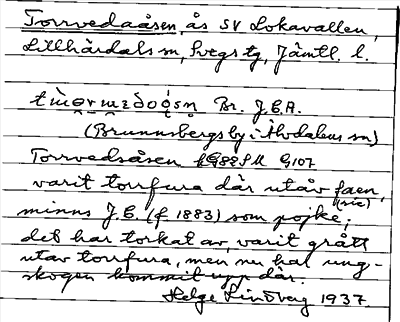 Torrvedaåsen, ås SV Lokavallen,
Lillhärdals sn, Svegs tg, Jämtl. l.
Br. J.E.A.
(Brunnsbergs by i Älvdalens sn)
Torrvedsåsen G107
varit torrfura där utåv faen,
(sic)
minns J.E. (f 1883) som pojke;
det har torkat av, varit grått
utav torrfura, men nu har ung-
skogen kommit upp där.
Helge Lindberg 1937.